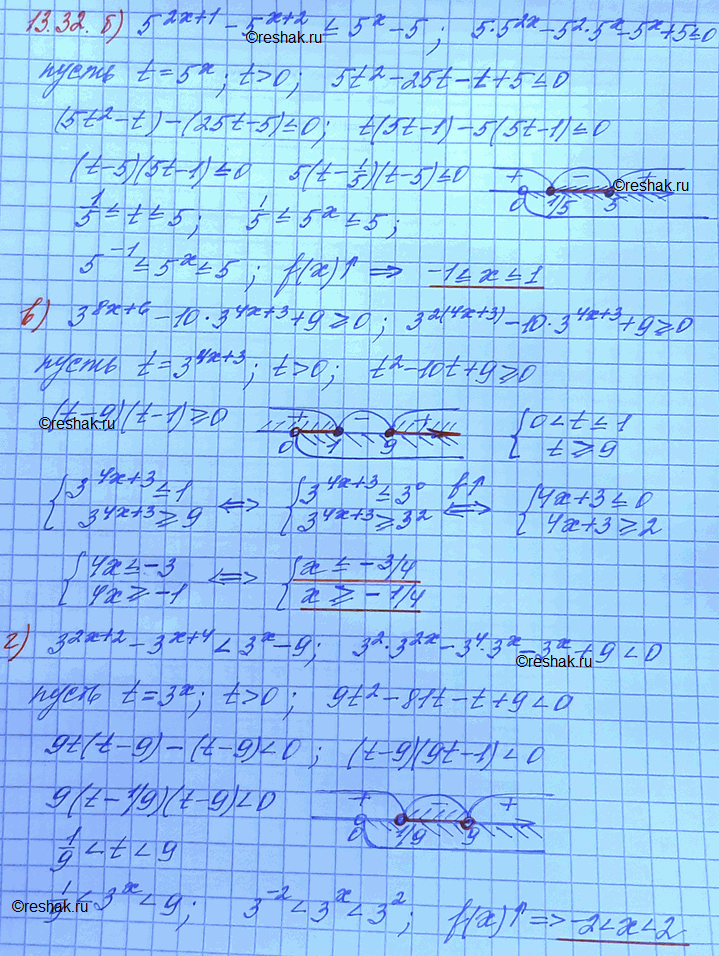 13.32. б) 5^(2x+1) - 5^(x+2) ≤ 5^x - 5; 5·5^(2x) - 5^2·5^x - 5^x + 5 ≤ 0
©reshak.ru
пусть t = 5^x; t > 0; 5t^2 - 25t - t + 5 ≤ 0
(5t^2 - t) - (25t - 5) ≤ 0; t(5t - 1) - 5(5t - 1) ≤ 0
(t - 5)(5t - 1) ≤ 0 5(t - 1/5)(t - 5) ≤ 0 + - +
©reshak.ru
0 1/5 5
1/5 ≤ t ≤ 5; 1/5 ≤ 5^x ≤ 5;
5^(-1) ≤ 5^x ≤ 5; f(x)↑ ⇒ -1 ≤ x ≤ 1
в) 3^(8x+6) - 10·3^(4x+3) + 9 ≥ 0; 3^(2(4x+3)) - 10·3^(4x+3) + 9 ≥ 0
пусть t = 3^(4x+3); t > 0; t^2 - 10t + 9 ≥ 0
©reshak.ru
(t - 9)(t - 1) ≥ 0 + - + { 0 < t ≤ 1
0 1 9 t ≥ 9
{ 3^(4x+3) ≤ 1 ⇔ { 3^(4x+3) ≤ 3^0 f↑ ⇔ { 4x+3 ≤ 0
3^(4x+3) ≥ 9 3^(4x+3) ≥ 3^2 4x+3 ≥ 2
{ 4x ≤ -3 ⇔ { x ≤ -3/4
4x ≥ -1 x ≥ -1/4
г) 3^(2x+2) - 3^(x+4) < 3^x - 9; 3^2·3^(2x) - 3^4·3^x - 3^x + 9 < 0
©reshak.ru
пусть t = 3^x; t > 0; 9t^2 - 81t - t + 9 < 0
9t(t - 9) - (t - 9) < 0; (t - 9)(9t - 1) < 0
9(t - 1/9)(t - 9) < 0 + +
0 1/9 9
1/9 < t < 9
1/9 < 3^x < 9; 3^(-2) < 3^x < 3^2; f(x)↑ ⇒ -2 < x < 2
©reshak.ru
©reshak.ru